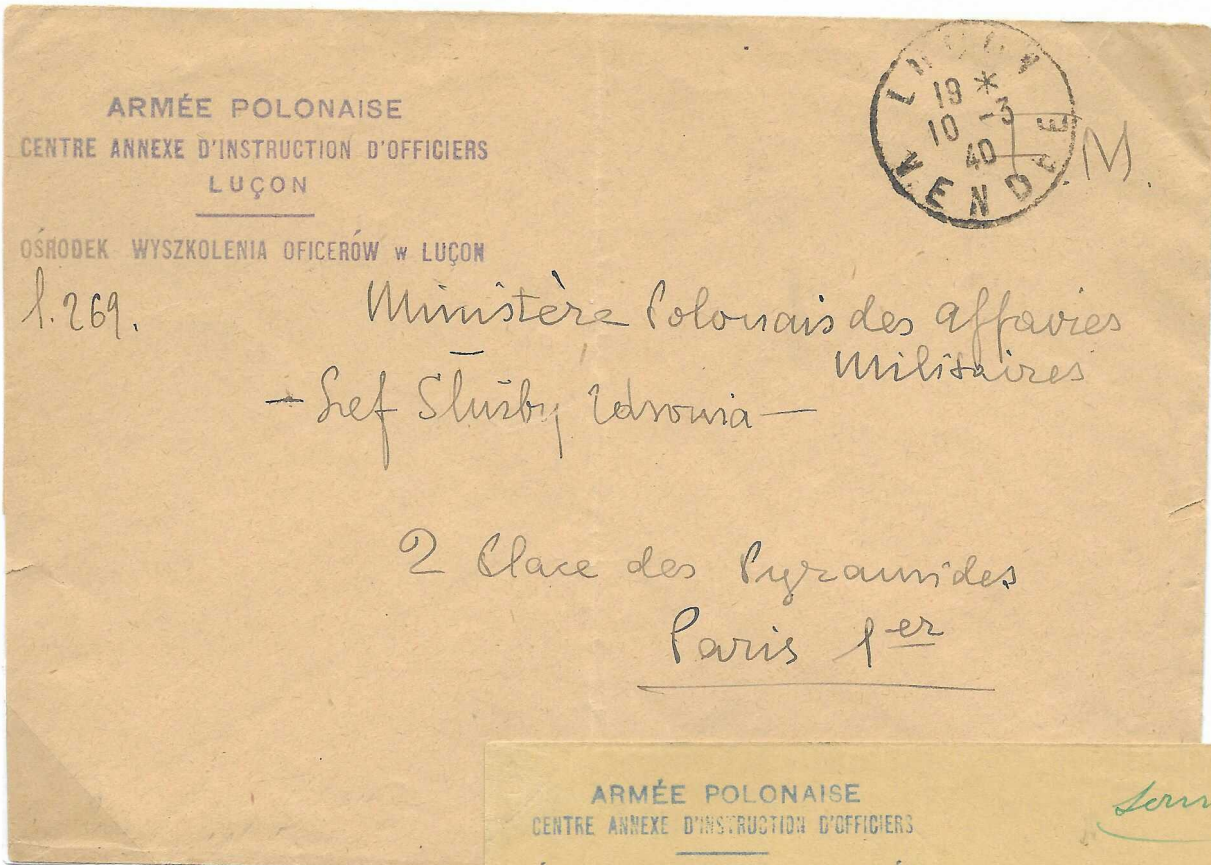 ARMÉE POLONAISE
CENTRE ANNEXE D'INSTRUCTION D'OFFICIERS
LUÇON
OŚRODEK WYSZKOLENIA OFICERÓW w LUÇON
LUÇON
19 *
10 -3
40
VENDÉE
l. 269.
Ministère Polonais des Affaires
Militaires
- Szef Służby Zdrowia -
2 Place des Pyramides
Paris 1er
ARMÉE POLONAISE
CENTRE ANNEXE D'INSTRUCTION D'OFFICIERS